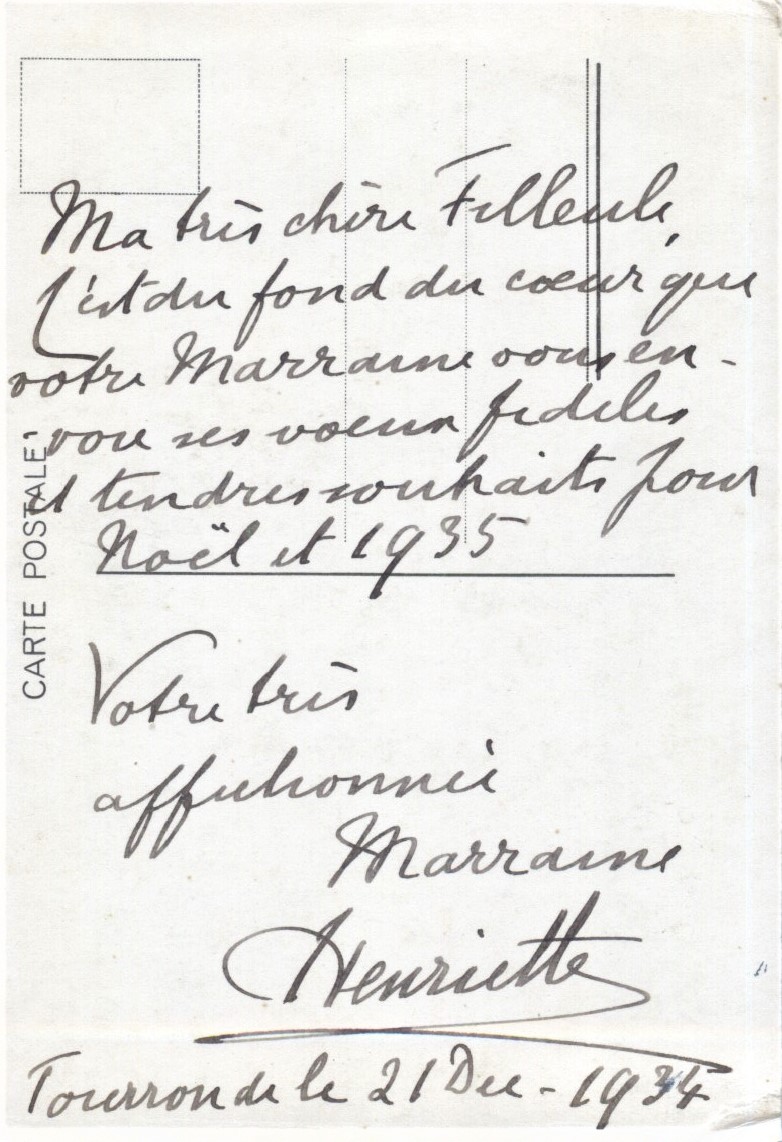 Ma très chère Filleule,
C'est du fond du cœur que
votre Marraine vous en-
voie ses voeux fidèles
et tendres souhaits pour
Noël et 1935
Votre très
affectionnée
Marraine
Henriette
Tourronde le 21 Dec - 1934
CARTE POSTALE